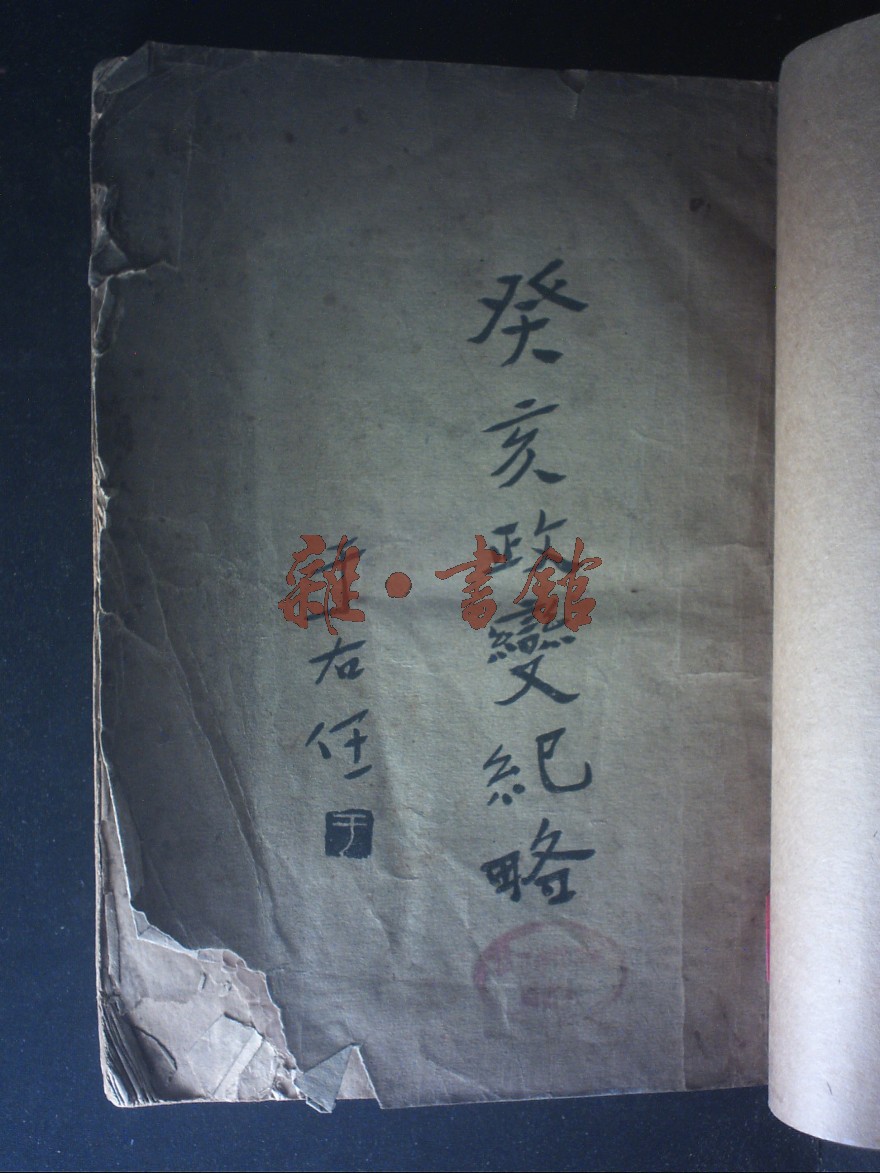 癸亥政變紀略
于右任
于
雜·書館